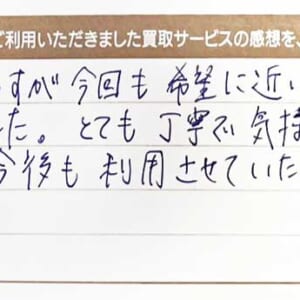 ご利用いただきました買取サービスの感想を、
すが今回も希望に近い
た。とても丁寧で気持
今後も利用させていた